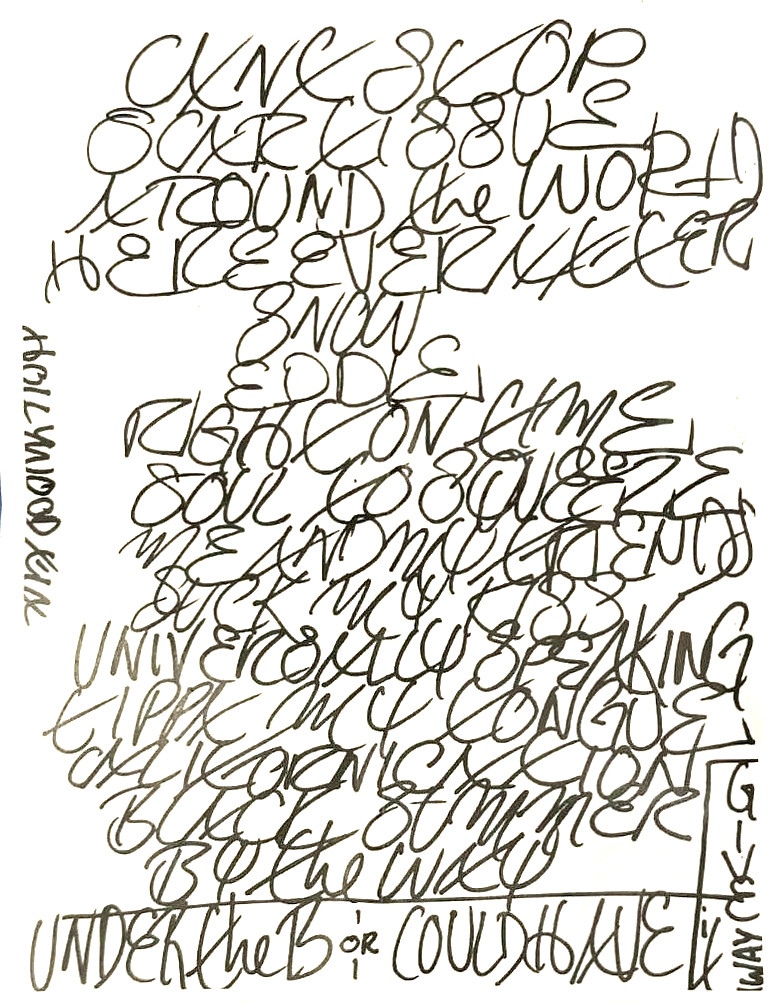 CAN'T STOP
SCAR TISSUE
AROUND the WORLD
HERE EVER AFTER
SNOW
EDDIE
RIGHT ON TIME
SOUL TO SQUEEZE
ME AND MY FRIENDS
SUCK MY KISS
UNIVERSALLY SPEAKING
TIPPA MY TONGUE
CALIFORNICATION
BLACK SUMMER
BY the WAY
UNDER the B OR COULD HAVE
GIVE it
AWAY